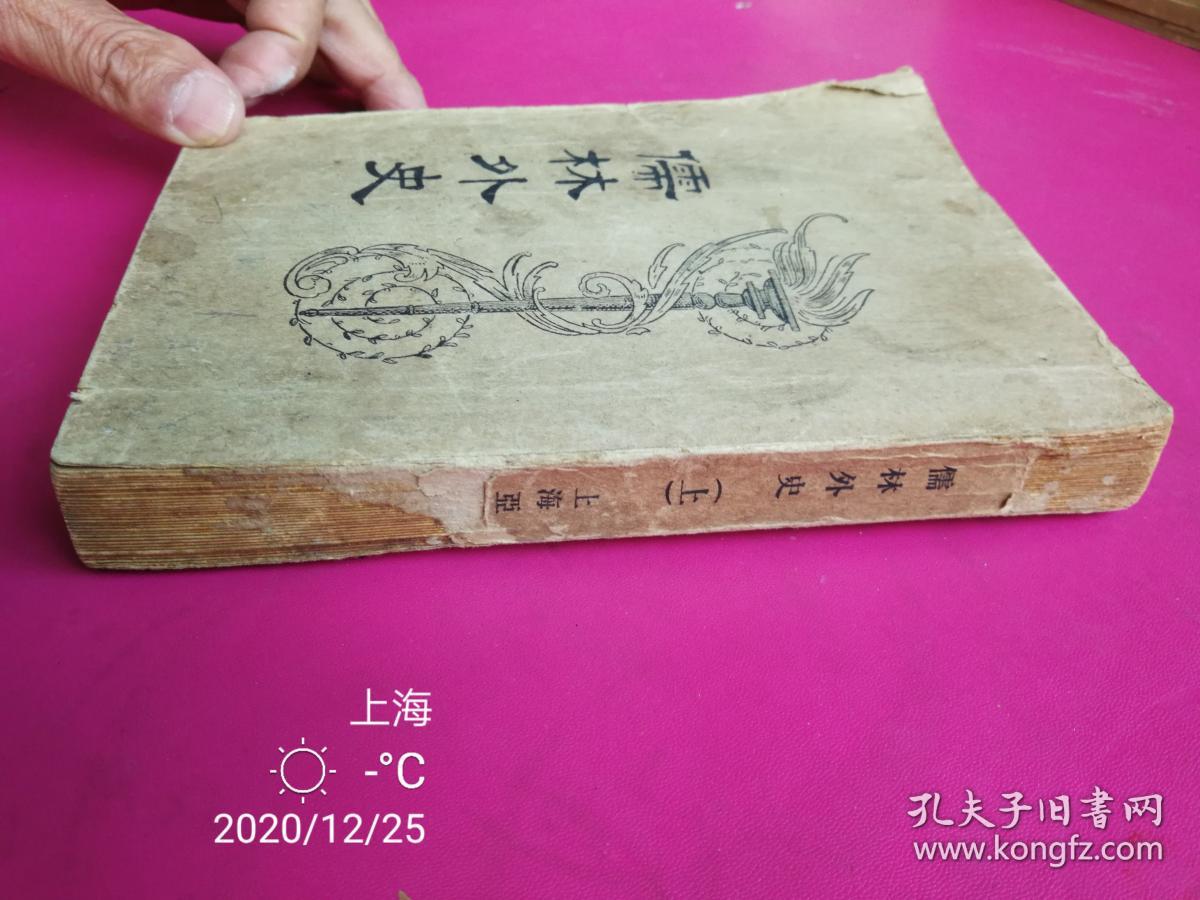 儒林外史
儒林外史（上）上海亞
上海
-°C
2020/12/25
孔夫子旧書网
www.kongfz.com